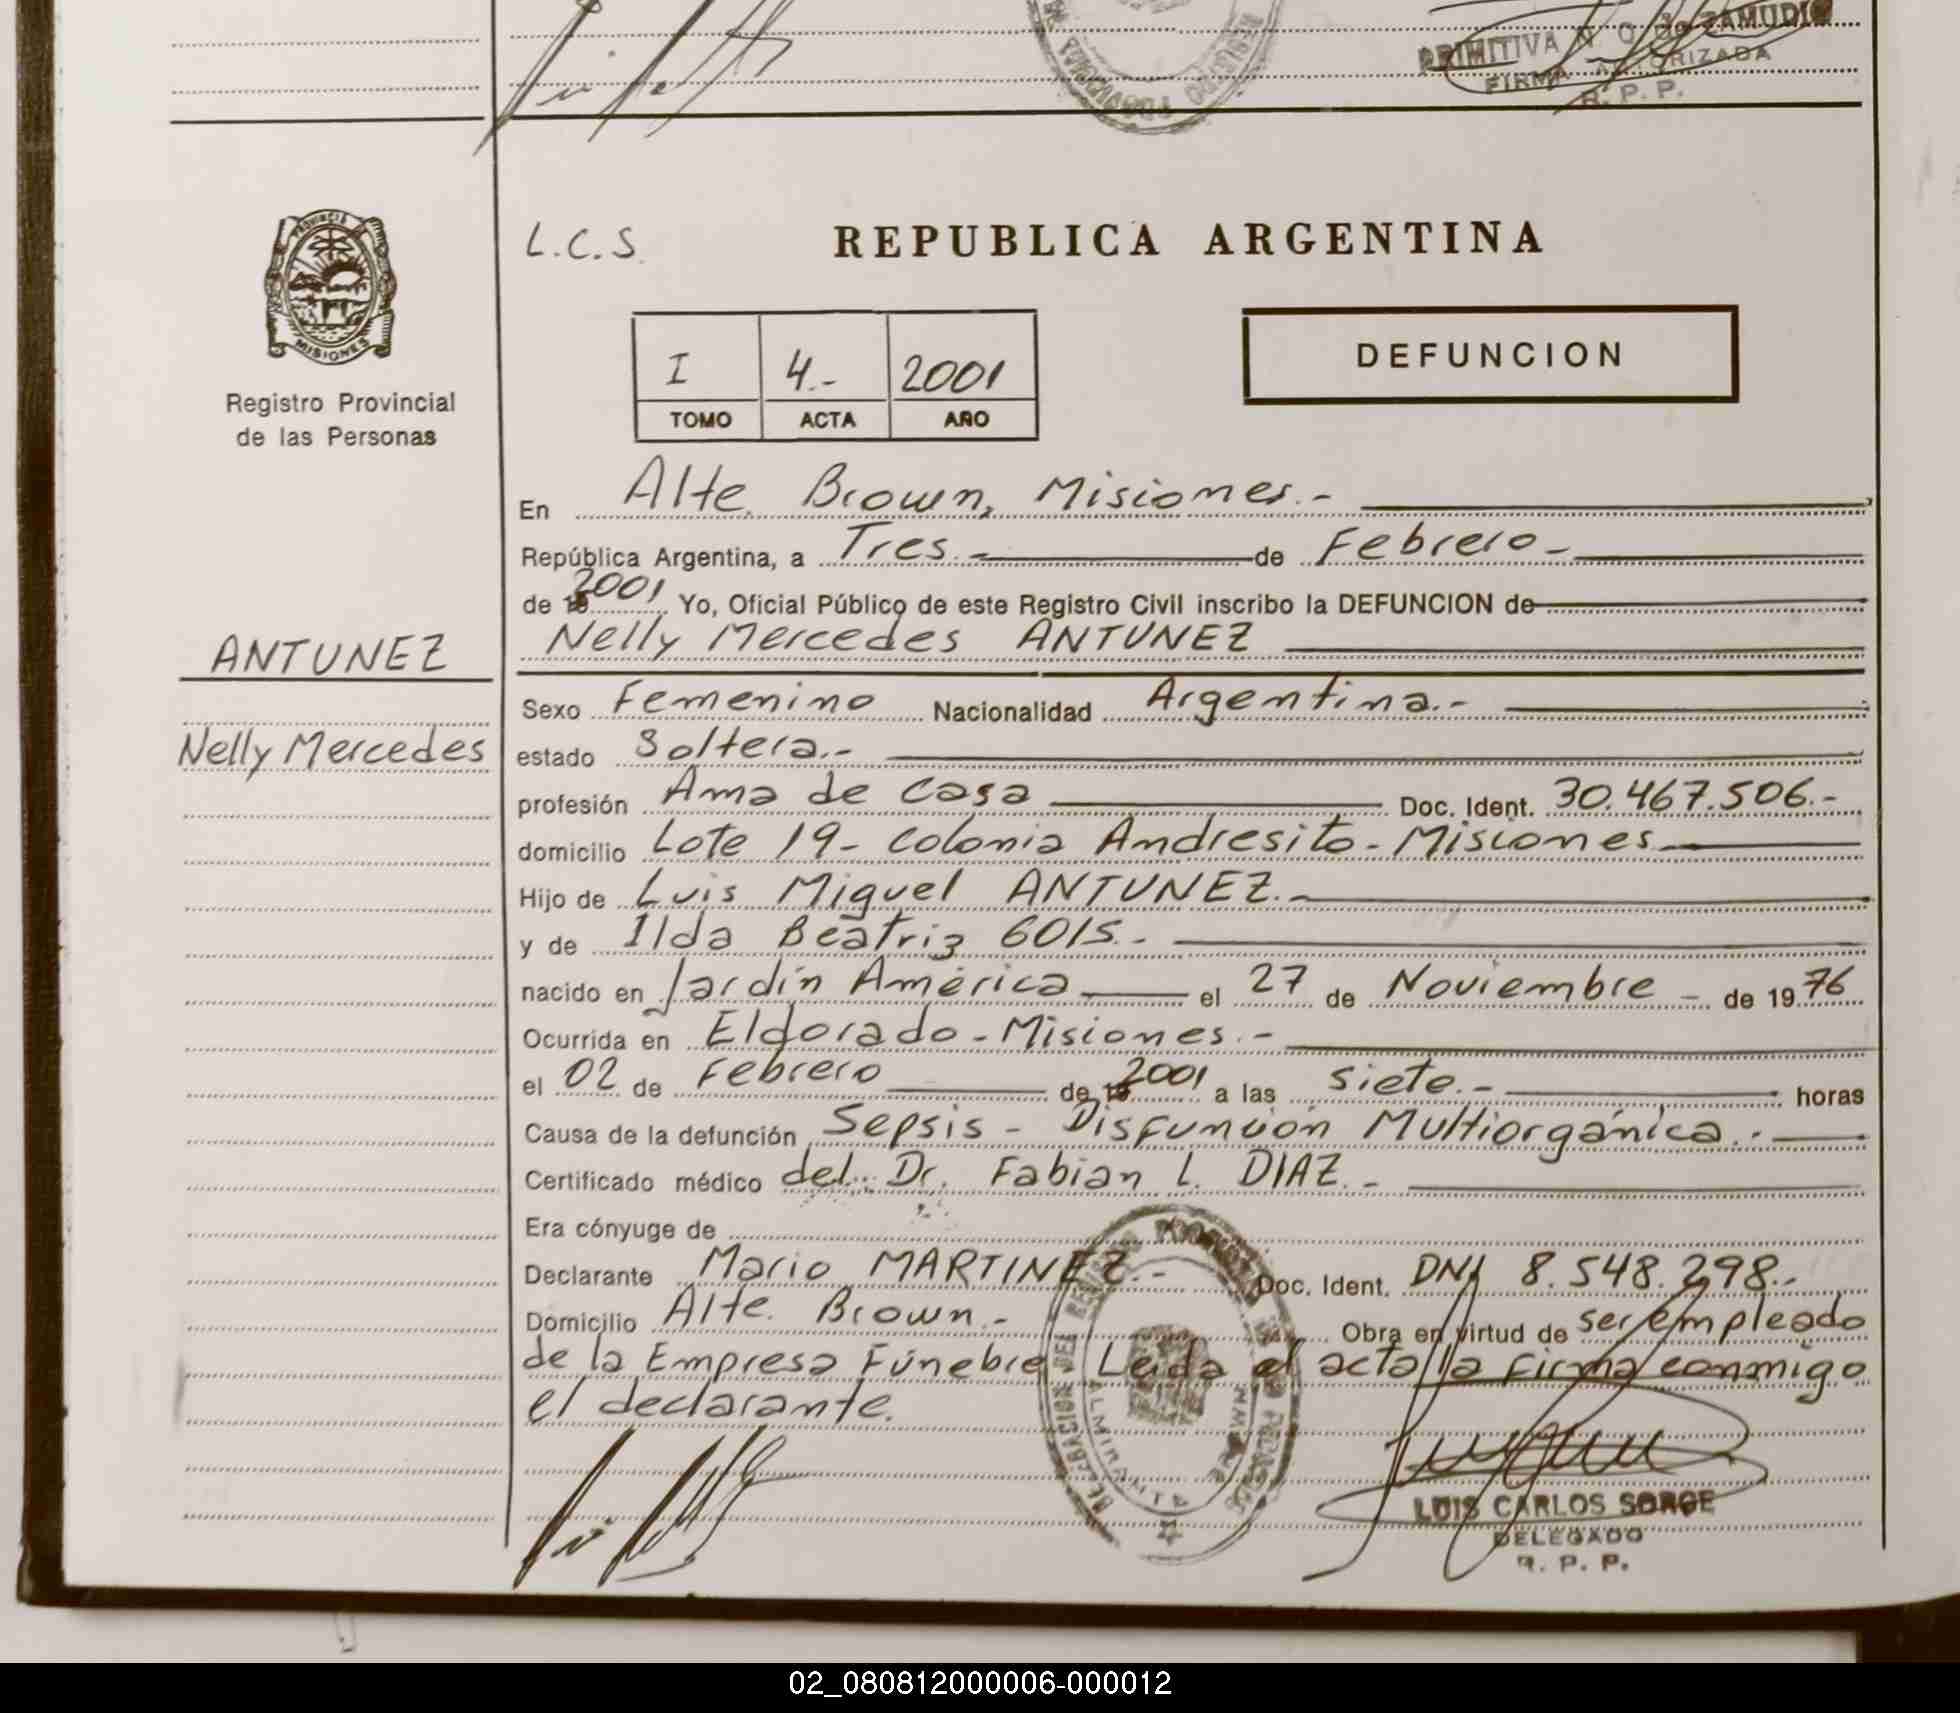 PRIMITIVA N. O. De ZAMUDIO
FIRMA AUTORIZADA
R. P. P.
PROVINCIA
MISIONES
Registro Provincial
de las Personas
L.C.S.
REPUBLICA ARGENTINA
I 4.- 2001
TOMO ACTA AÑO
DEFUNCION
En Alte. Brown, Misiones.-
República Argentina, a Tres.- de Febrero.-
de 19 2001 Yo, Oficial Público de este Registro Civil inscribo la DEFUNCION de
Nelly Mercedes ANTUNEZ
ANTUNEZ
Nelly Mercedes
Sexo Femenino Nacionalidad Argentina.-
estado Soltera.-
profesión Ama de Casa Doc. Ident. 30.467.506.-
domicilio Lote 19- Colonia Andresito- Misiones
Hijo de Luis Miguel ANTUNEZ.-
y de Ilda Beatriz GOIS.-
nacido en Jardín América el 27 de Noviembre - de 1976
Ocurrida en Eldorado - Misiones.-
el 02 de Febrero de 19 2001 a las siete.- horas
Causa de la defunción Sepsis - Disfunción Multiorgánica.-
Certificado médico del Dr. Fabian L. DIAZ.-
Era cónyuge de
Declarante Mario MARTINEZ.- Doc. Ident. DNI 8.548.298.-
Domicilio Alte. Brown.- Obra en virtud de ser empleado
de la Empresa Fúnebre Leida el acta la firma conmigo
el declarante.
DELEGACION DEL REGISTRO PROVINCIAL DE LAS PERSONAS
ALMIRANTE BROWN
LUIS CARLOS SORGE
DELEGADO
R. P. P.
02_080812000006-000012